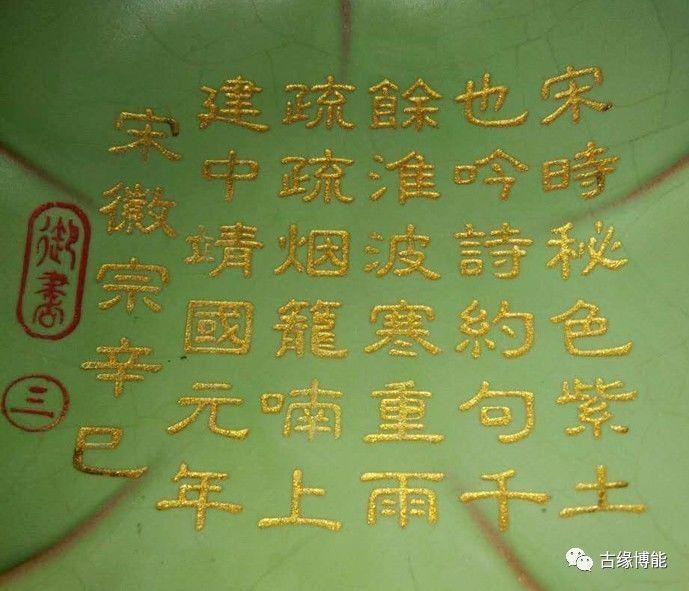 宋時秘色紫土
也吟詩約句千
餘淮波寒重雨
疏疏烟籠喃上
建中靖國元年
宋徽宗辛巳
御書
三
古缘博能